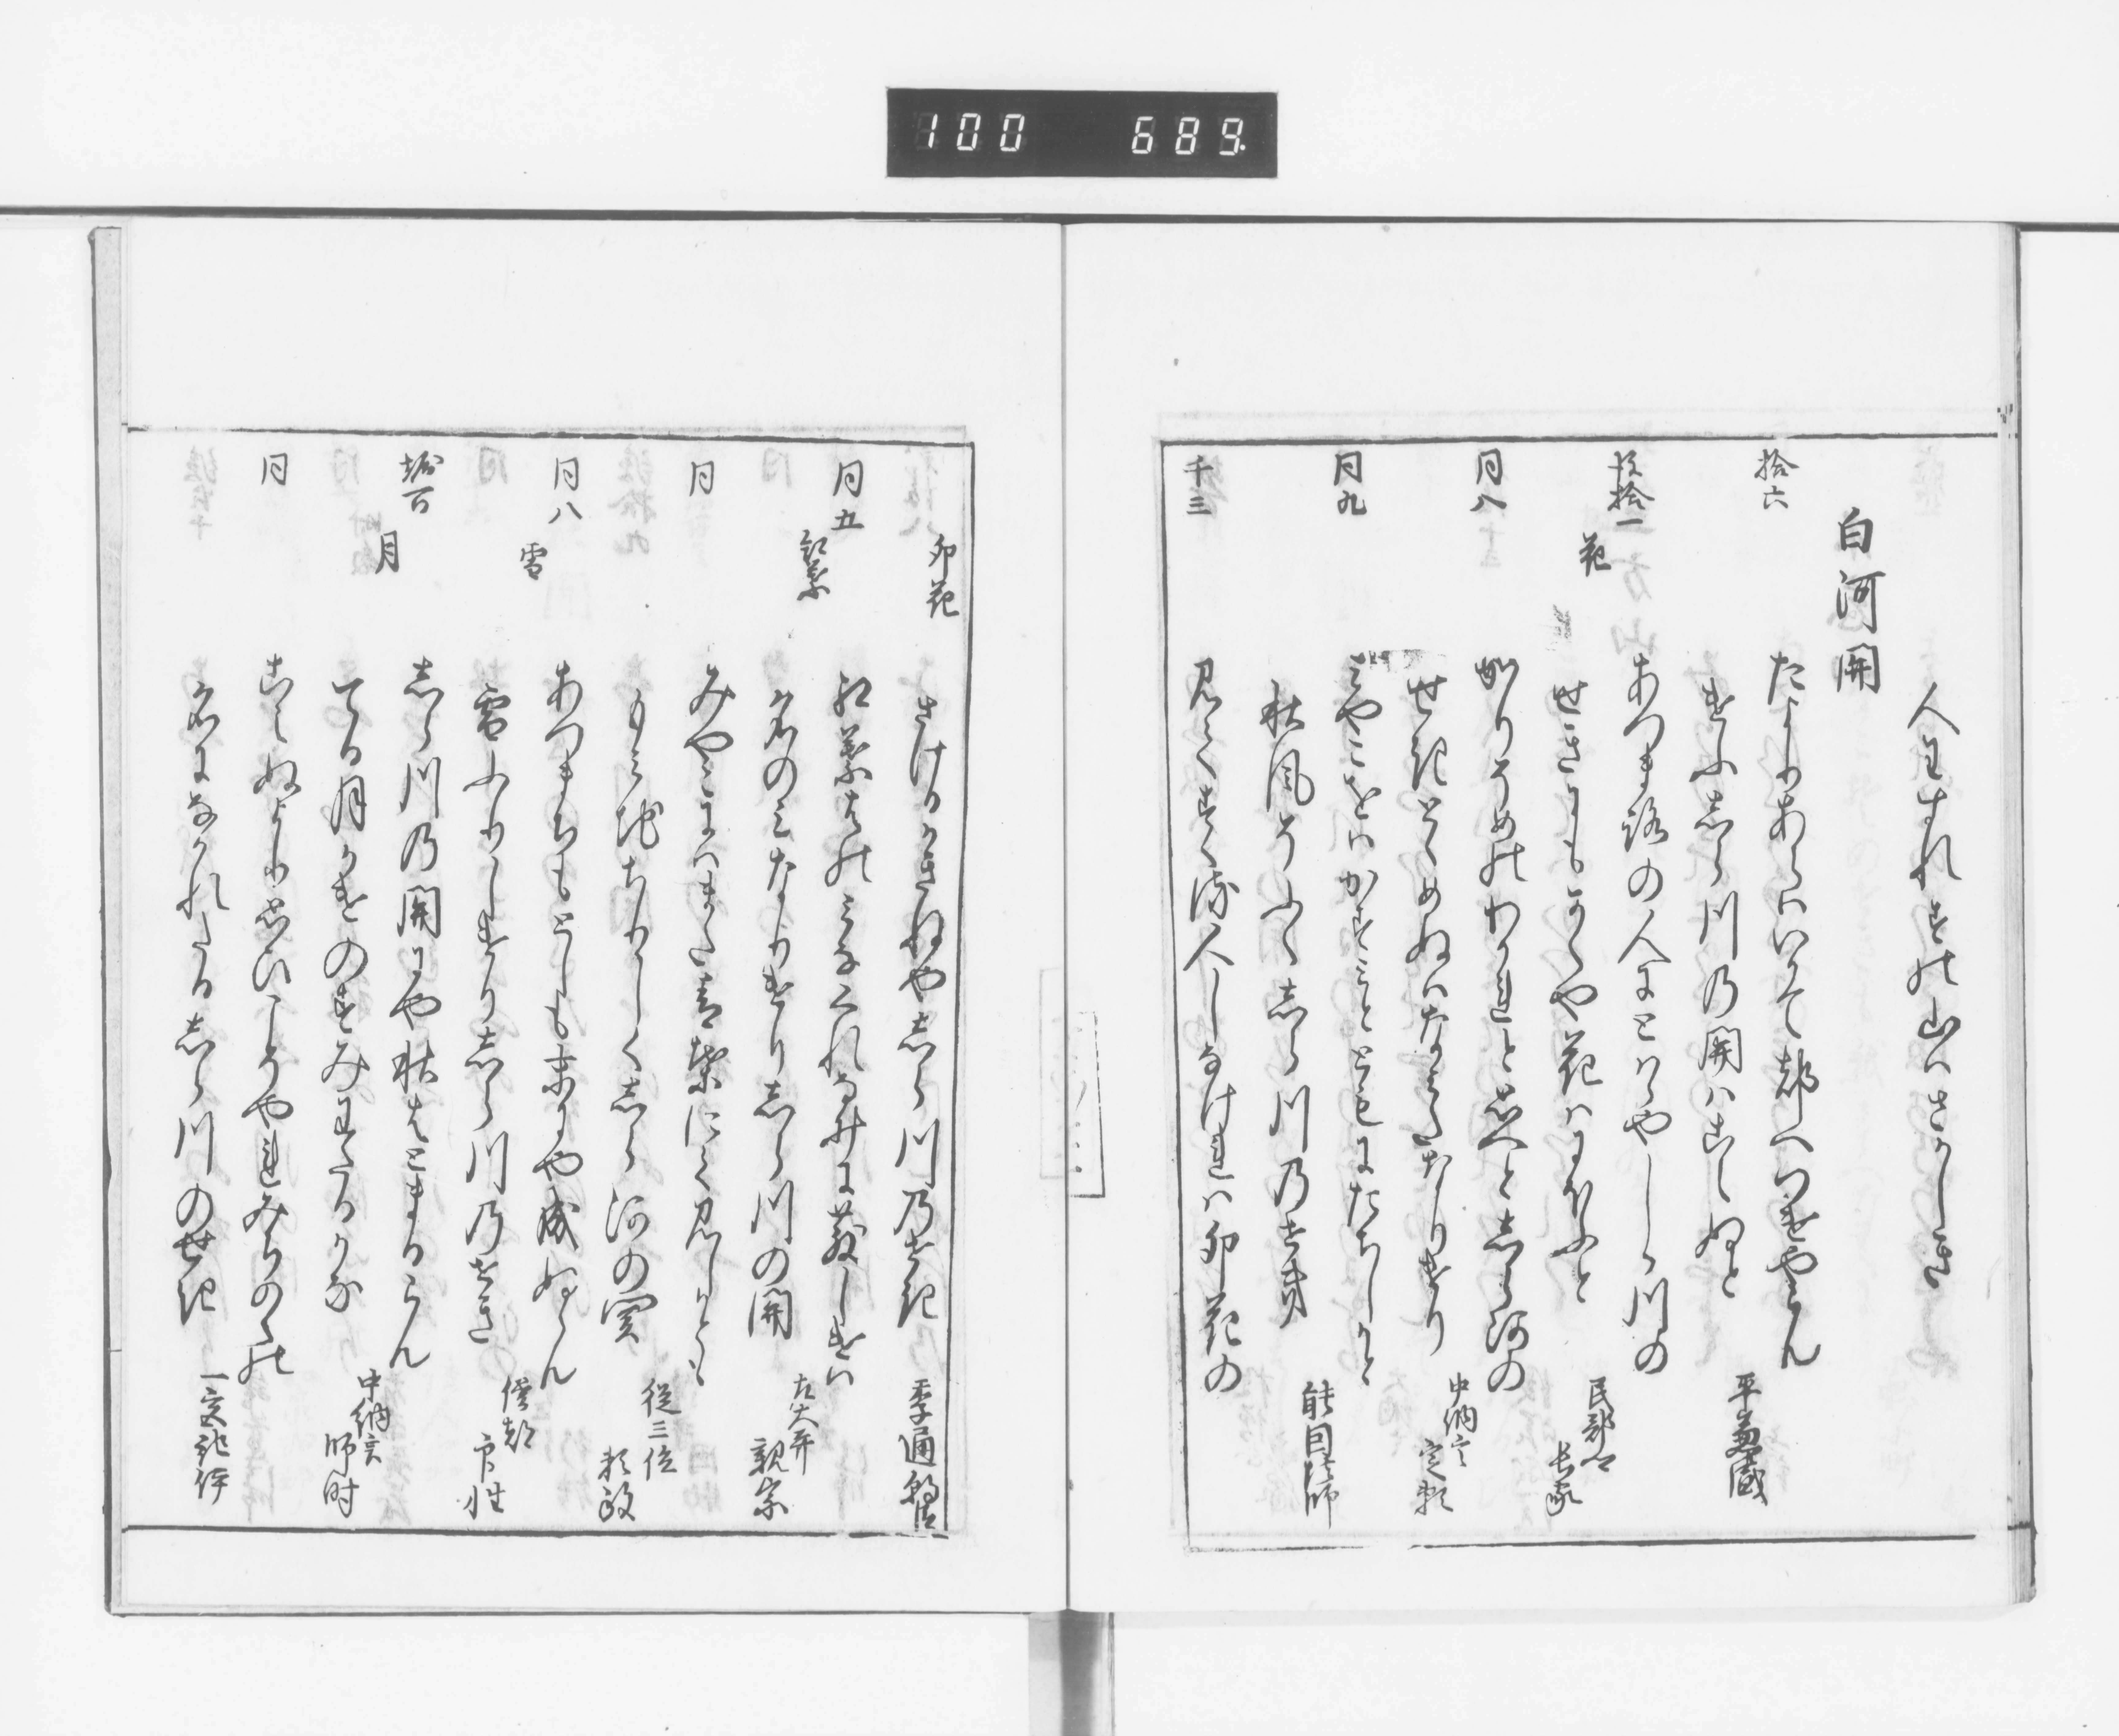 100 689
人わすれすの山はさかしき
白河関
拾六
たよりあらはいかて都へつけやらん
平兼盛
けふしら川の関はこえぬと
後拾一
花
あつま路の人にとはゝやしら川の
民部卿
長家
せきにもかくや花はにほふと
同八
かりそめのわかれとおもへとしら河の
中納言
定頼
せきとゝめぬはなみたなりけり
同九
みやこをはかすみとともにたちしかと
能因法師
秋風そふくしら川のせき
千三
見てすくる人しなけれは卯花の
卯花
さけるかきねやしら川のせき
季通朝臣
同五
紅葉
紅葉はのみなくれなゐに散しけは
左大弁
親宗
名のみなりけりしら川の関
同
みやこにはまた青葉にて見しかとも
従三位
頼政
もみちちりしくしら河の関
同八
雪
あつまちもとしも末にや成ぬらん
僧都
印性
雪ふりにけりしら川のせき
堀百
月
しら川の関にや秋はとまるらん
中納言
師時
てる月かけのすみわたるかな
同
こえぬより思ひこそやれみちのくの
名になかれたるしら川のせき
一宮紀伊